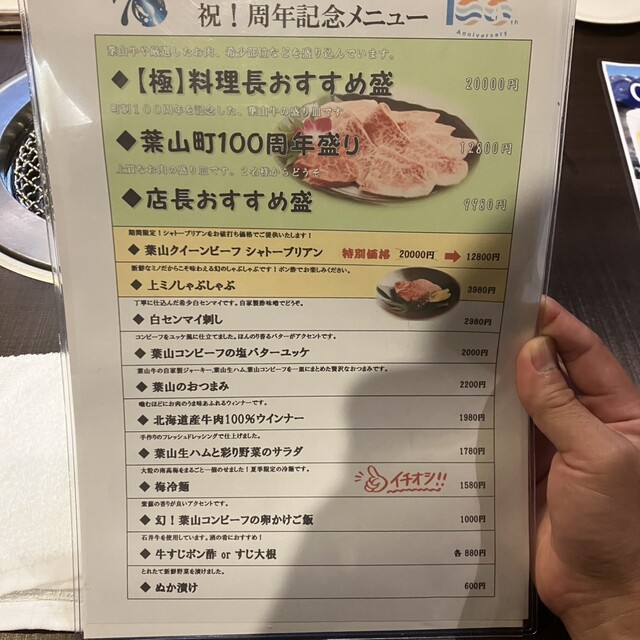 祝!周年記念メニュー
Anniversary
葉山牛や厳選したお肉、希少部位などを盛り込んでいます。
◆【極】料理長おすすめ盛 20000円
町制100周年を記念した、葉山牛の盛り皿です。
◆葉山町100周年盛り 12800円
上質なお肉の盛り皿です。2名様からどうぞ
◆店長おすすめ盛 9980円
期間限定!シャトーブリアンをお値打ち価格でご提供いたします!
◆葉山クイーンビーフ シャトーブリアン 特別価格 20000円 ➡ 12800円
新鮮なミノだからこそ味わえる幻のしゃぶしゃぶです!ポン酢でお楽しみください。
◆上ミノしゃぶしゃぶ 3980円
丁寧に仕込んだ希少白センマイです。自家製酢味噌でどうぞ。
◆白センマイ刺し 2980円
コンビーフをユッケ風に仕立てました。ほんのり香るバターがアクセントです。
◆葉山コンビーフの塩バターユッケ 2000円
葉山牛の自家製ジャーキー、葉山生ハム、葉山コンビーフを一皿にまとめた贅沢なおつまみです。
◆葉山のおつまみ 2200円
噛むほどにお肉のうま味あふれるウィンナーです。
◆北海道産牛肉100%ウインナー 1980円
手作りのフレッシュドレッシングで仕上げました。
◆葉山生ハムと彩り野菜のサラダ 1780円
大粒の南高梅をまるごと一個のせました!夏季限定の冷麺です。
◆梅冷麺 イチオシ!! 1580円
紫蘇の香りが良いアクセントです。
◆幻!葉山コンビーフの卵かけご飯 1000円
石井牛を使用しています。酒の肴におすすめ!
◆牛すじポン酢 or すじ大根 各880円
とれたて新鮮野菜を漬けました。
◆ぬか漬け 600円